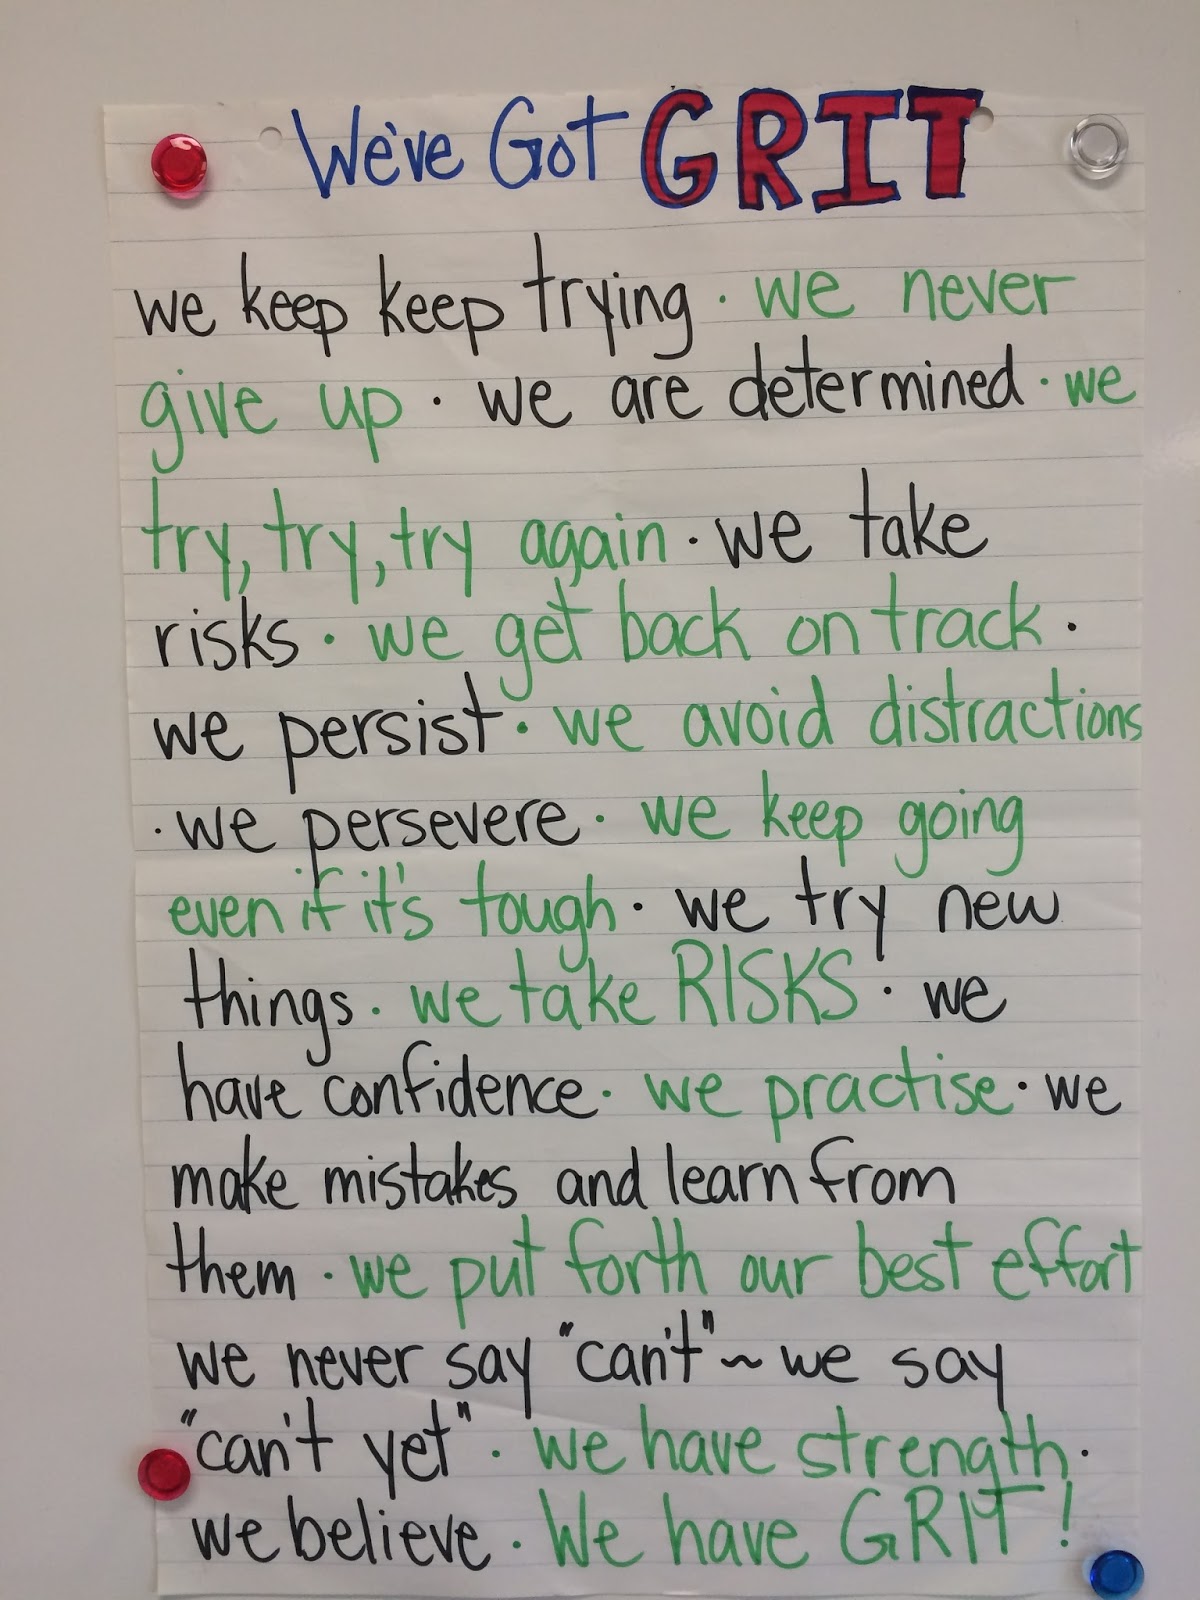 We've Got GRIT
we keep keep trying · we never
give up · we are determined · we
try, try, try again · we take
risks · we get back on track ·
we persist · we avoid distractions
· we persevere · we keep going
even if it's tough · we try new
things · we take RISKS · we
have confidence · we practise · we
make mistakes and learn from
them · we put forth our best effort
we never say "can't" ~ we say
"can't yet" · we have strength ·
we believe · We have GRIT !